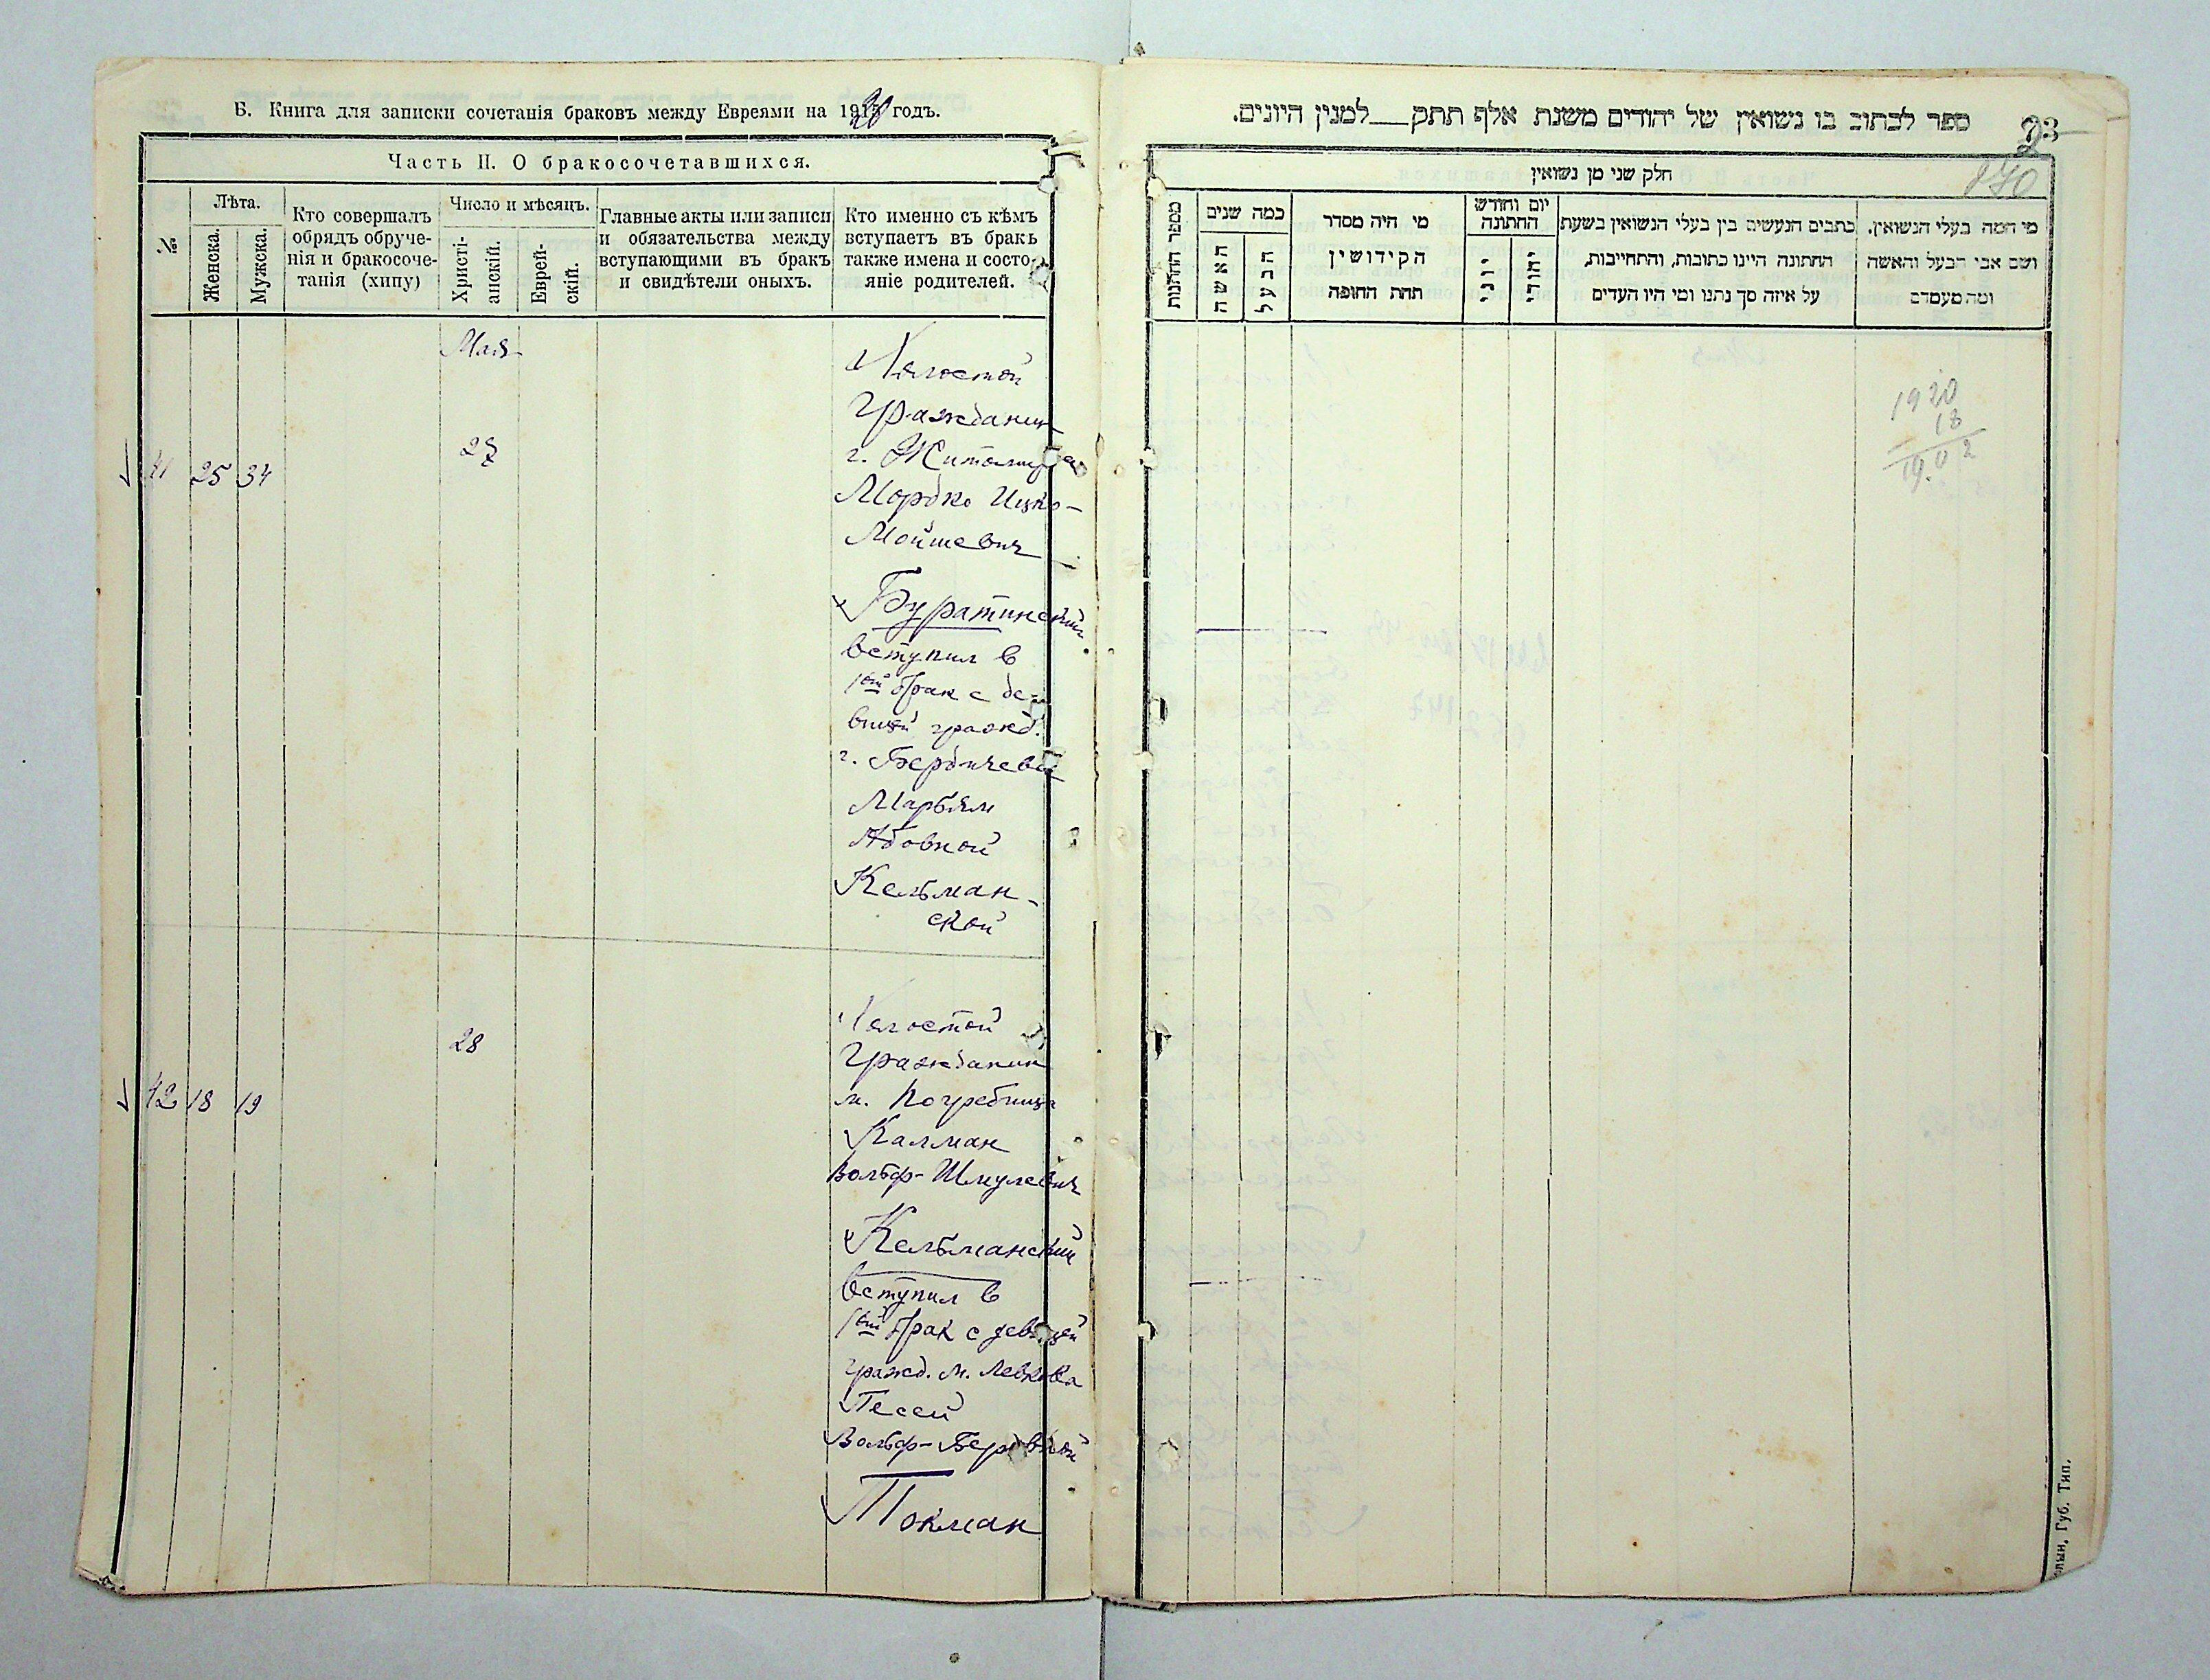 Б. Книга для записки сочетанія браковъ между Евреями на 1920 годъ.
Часть II. О бракосочетавшихся.
№
Лѣта.
Женска.
Мужска.
Кто совершалъ
обрядъ обруче-
нія и бракосоче-
танія (хипу)
Число и мѣсяцъ.
Христі-
анскій.
Еврей-
скій.
Главные акты или записи
и обязательства между
вступающими въ бракъ
и свидѣтели оныхъ.
Кто именно съ кѣмъ
вступаетъ въ бракъ
также имена и состо-
яніе родителей.
Мая
41 25 34
27
Холостой
Гражданин
г. Житомира
Мордко Ицко-
Мойшевич
Буратинский
вступил в
1ый брак с де-
вицей гражд.
г. Бердичева
Марьям
Абовной
Кельман-
ской
42 18 19
28
Холостой
Гражданин
м. Погребища
Калман
Вольф-Шмулевич
Кельманский
вступил в
1ый брак с девицей
гражд. м. Левкова
Песей
Вольф-Беровной
Токман
ספר לכתוב בו נשואין של יהודים משנת אלף תתק__למנין היונים.
23
870
חלק שני מן נשואין
מספר החתנות
כמה שנים
האשה
הבעל
מי היה מסדר
הקידושין
תחת החופה
יום וחודש
החתונה
יוני
יהודי
כתבים הנעשים בין בעלי הנשואין בשעת
החתונה היינו כתובות, והתחייבות,
על איזה סך נתנו ומי היו העדים
מי המה בעלי הנשואין.
ושם אבי הבעל והאשה
ומה מעמדם
1920
18
1902
Губ. Тип.